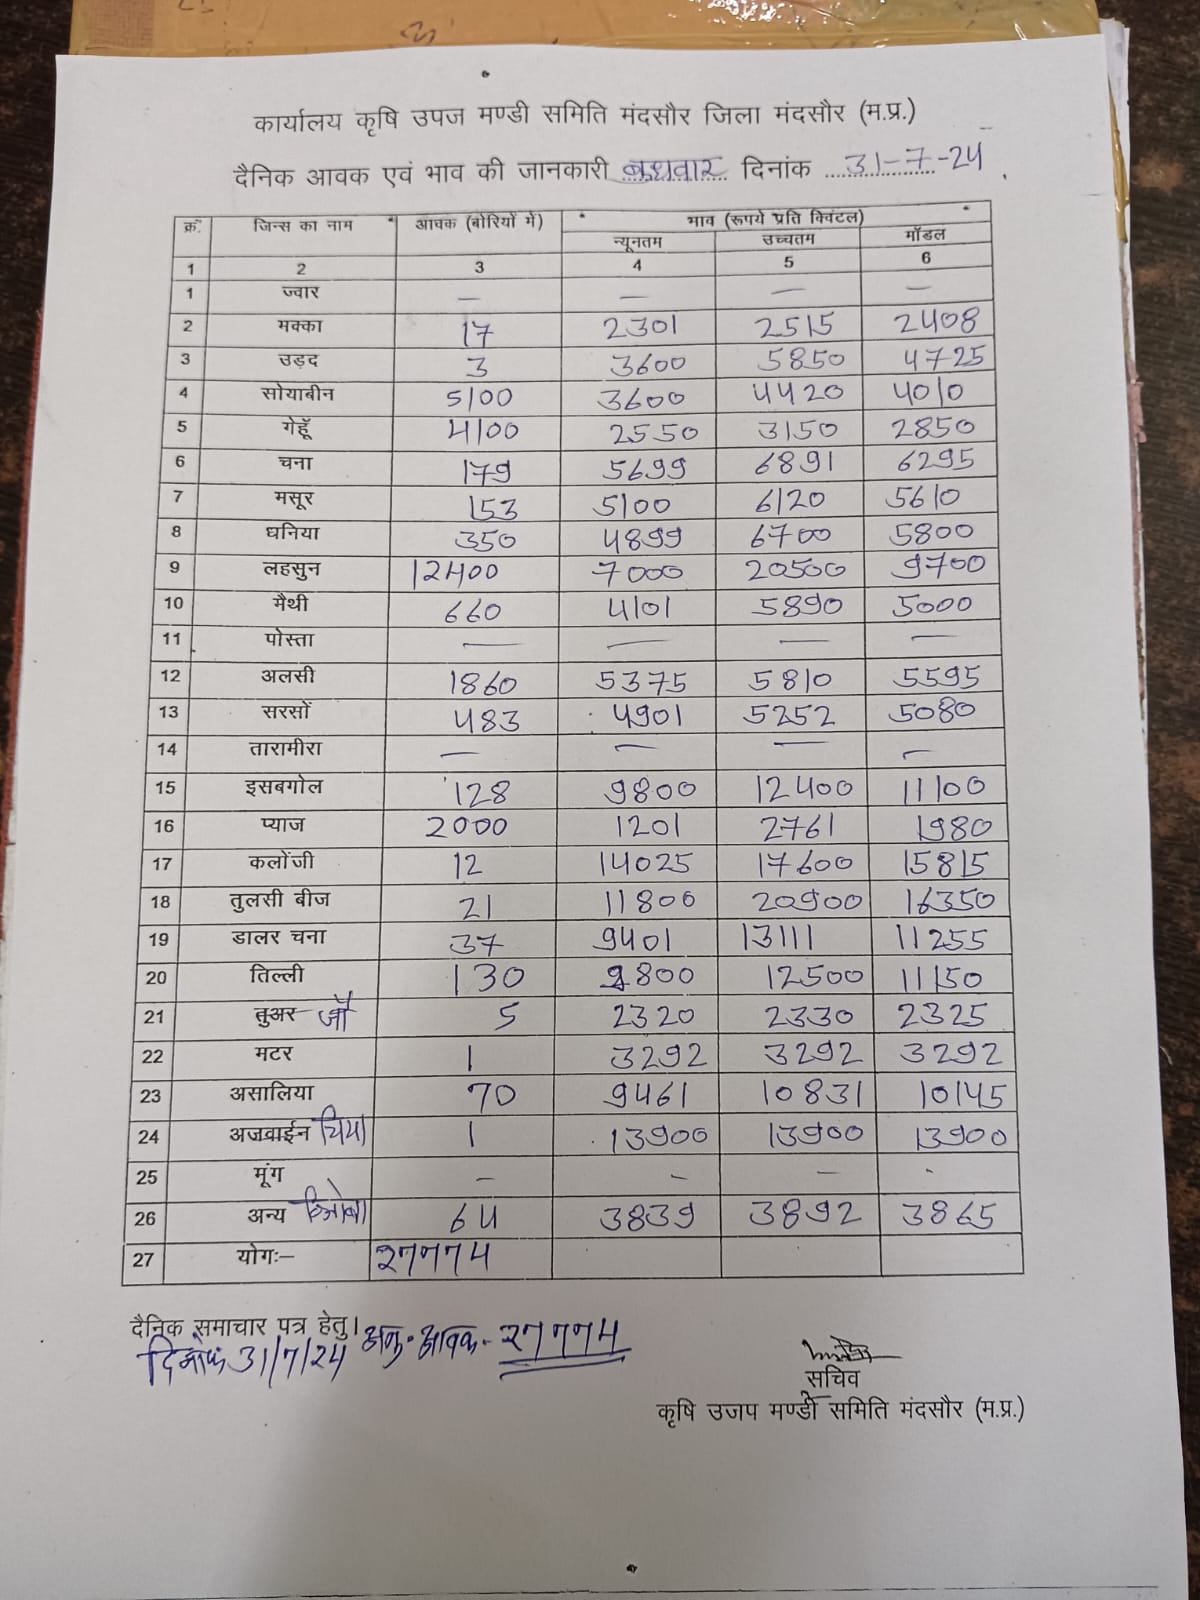 कार्यालय कृषि उपज मण्डी समिति मंदसौर जिला मंदसौर (म.प्र.)
दैनिक आवक एवं भाव की जानकारी बुधवार दिनांक 31-7-24
क्र. जिन्स का नाम आवक (बोरियों में) भाव (रूपये प्रति क्विंटल)
न्यूनतम उच्चतम मॉडल
1 2 3 4 5 6
1 ज्वार — — — —
2 मक्का 17 2301 2515 2408
3 उड़द 3 3600 5850 4725
4 सोयाबीन 5100 3600 4420 4010
5 गेहूँ 4100 2550 3150 2850
6 चना 179 5699 6891 6295
7 मसूर 153 5100 6120 5610
8 धनिया 350 4899 6700 5800
9 लहसुन 12400 7000 20500 9700
10 मैथी 660 4101 5890 5000
11 पोस्ता — — — —
12 अलसी 1860 5375 5810 5595
13 सरसों 483 4901 5252 5080
14 तारामीरा — — — —
15 इसबगोल 128 9800 12400 11100
16 प्याज 2000 1201 2761 1980
17 कलोंजी 12 14025 17600 15815
18 तुलसी बीज 21 11800 20900 16350
19 डालर चना 37 9401 13111 11255
20 तिल्ली 130 9800 12500 11150
21 तुअर जौ 5 2320 2330 2325
22 मटर 1 3292 3292 3292
23 असालिया 70 9461 10831 10145
24 अजवाईन चिया 1 13900 13900 13900
25 मूंग - - - -
26 अन्य 64 3839 3892 3865
27 योगः- 27774
दैनिक समाचार पत्र हेतु।
दिनांक 31/7/24 अनु. आवक- 27774
सचिव
कृषि उजप मण्डी समिति मंदसौर (म.प्र.)